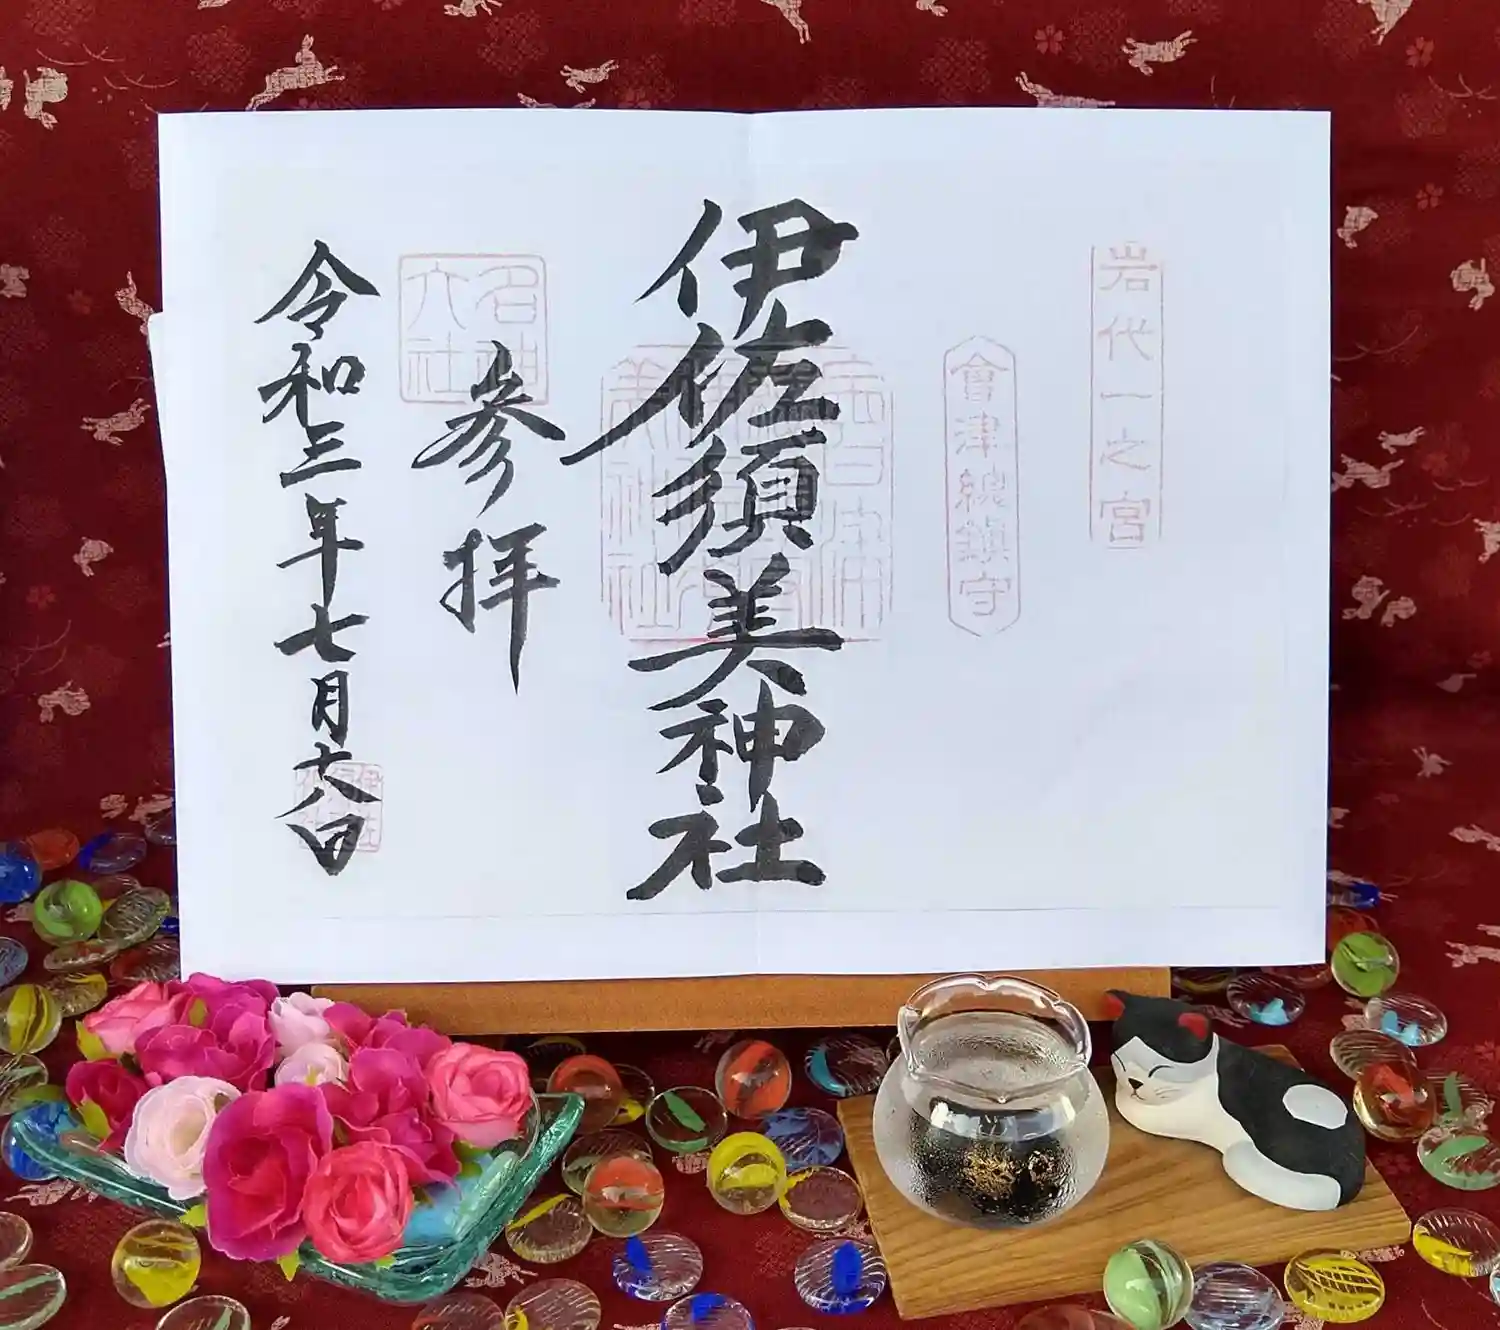 岩代一之宮
會津總鎮守
伊佐須美神社
名神
大社
参拝
令和三年七月十八日